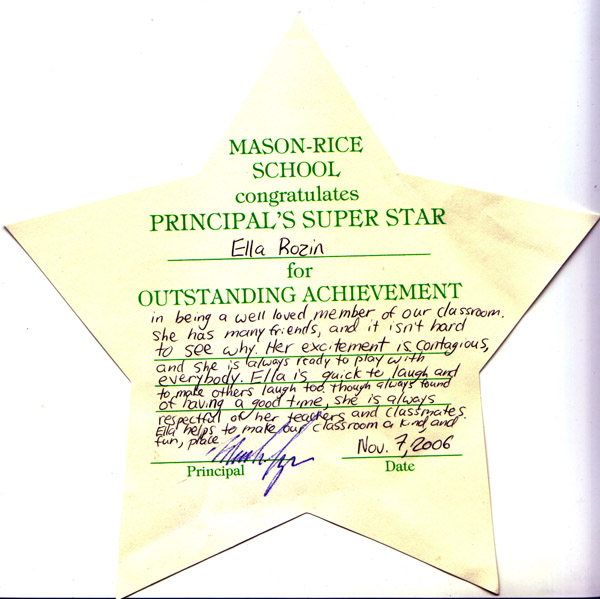 MASON-RICE
SCHOOL
congratulates
PRINCIPAL'S SUPER STAR
Ella Rozin
for
OUTSTANDING ACHIEVEMENT
in being a well loved member of our classroom.
She has many friends, and it isn't hard
to see why. Her excitement is contagious,
and she is always ready to play with
everybody. Ella is quick to laugh and
to make others laugh too. Though always found
of having a good time, she is always
respectful of her teachers and classmates.
Ella helps to make our classroom a kind and
fun, place.
Nov. 7, 2006
Principal
Date